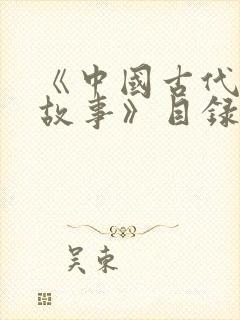 《中國古代
故事》目録
吴東